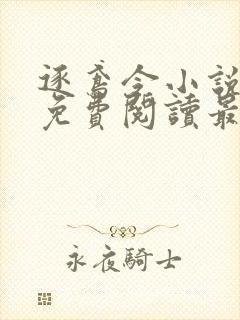 逐鸢令小說
免費閱讀最
永夜騎士